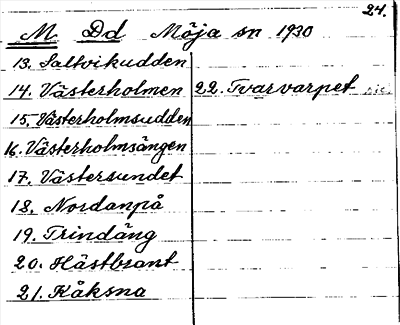 24.
M Dd Möja sn 1930
13. Saltvikudden
14. Västerholmen
15. Västerholmsudden
16. Västerholmsängen
17. Västersundet
18. Nordanpå
19. Trindäng
20. Hästbrant
21. Kåksna
22. Tvarvarpet